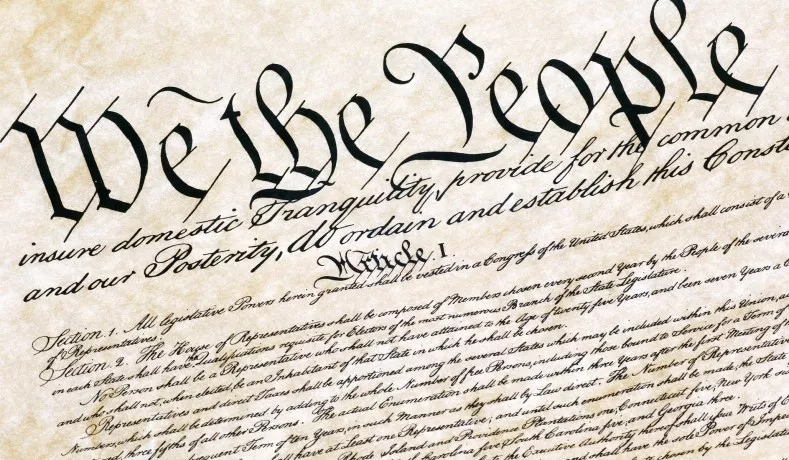 We the People
insure domestic Tranquility, provide for the common
and our Posterity, do ordain and establish this Consti
Article. I.
Section. 1. All legislative Powers herein granted shall be vested in a Congress of the United States, which shall consist of a
of Representatives.
Section. 2. The House of Representatives shall be composed of Members chosen every second Year by the People of the several
in each State shall have the Qualifications requisite for Electors of the most numerous Branch of the State Legislature.
No Person shall be a Representative who shall not have attained to the Age of twenty five Years, and been seven Years a C
and who shall not, when elected, be an Inhabitant of that State in which he shall be chosen.
Representatives and direct Taxes shall be apportioned among the several States which may be included within this Union, ac
Numbers, which shall be determined by adding to the whole Number of free Persons, including those bound to Service for a Term of
three fifths of all other Persons. The actual Enumeration shall be made within three Years after the first Meeting of the
subsequent Term of ten Years, in such Manner as they shall by Law direct. The Number of Representatives
shall have at Least one Representative; and until such enumeration shall be made, the State
Rhode Island and Providence Plantations one, Connecticut five, New York six
Carolina five, South Carolina five, and Georgia three.
the Executive Authority thereof shall issue Writs of
and shall have the sole Power of Impea
chosen by the Legislature